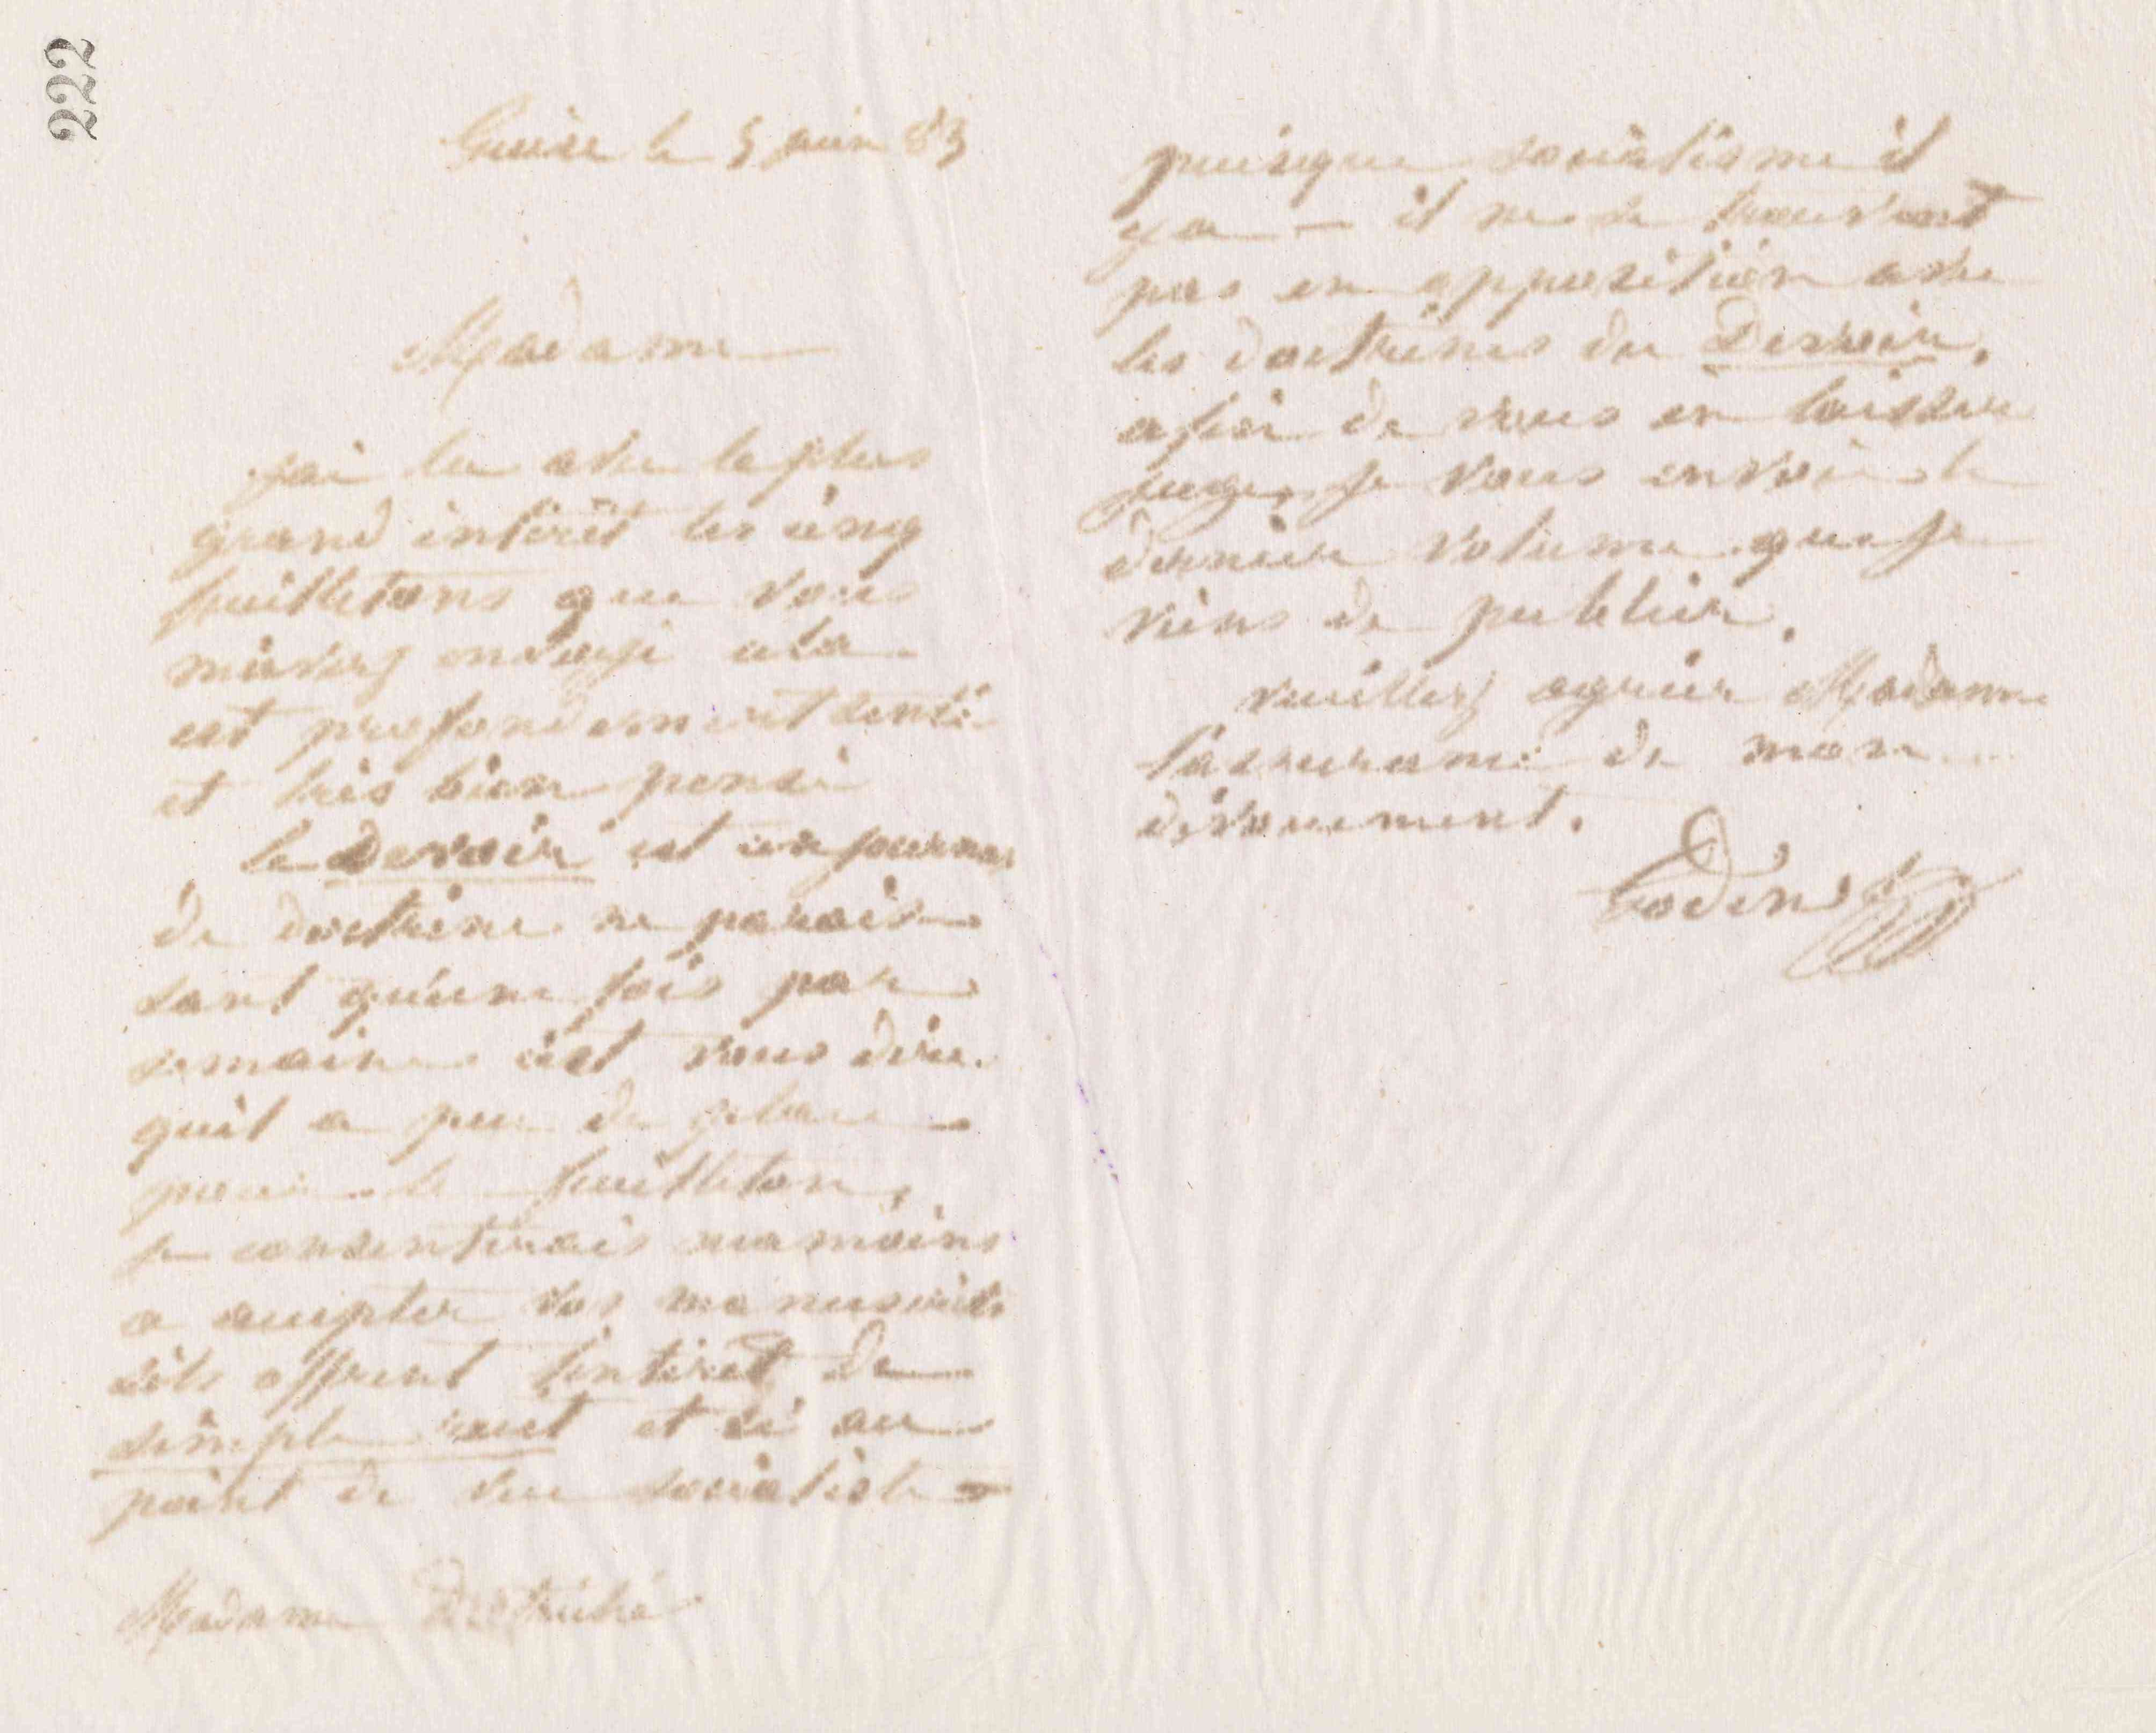 222
Guise le 5 juin 83
Madame
j'ai lu avec le plus
grand intérêt les cinq
feuilletons que vous
m'avez envoyé cela
est profondement senti
et très bien pensé
le Devoir est un journal
de doctrine ne parais
sant qu'une fois par
semaine c'est vous dire
qu'il a peu de place
pour le feuilleton,
je consentirais neamoins
a accepter vos manuscrits
s'ils offrent l'intérêt de
simple et si au
point de vue socialiste –
Madame
puisque socialisme il
y a – il ne se trouvent
pas en opposition avec
les doctrines du Devoir.
afin de vous en laisser
juge, je vous envoie le
dernier volume que je
viens de publier.
veuillez agréer Madame
l'assurance de mon
dévouement.
Godin